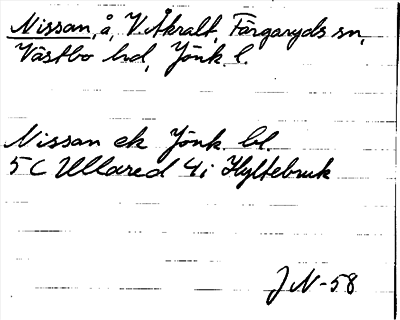 Nissan, å, V. Åkralt, Färgaryds sn,
Västbo hd, Jönk. l.
Nissan ek Jönk. bl.
5 C Ullared 4 i Hyltebruk
J N - 58